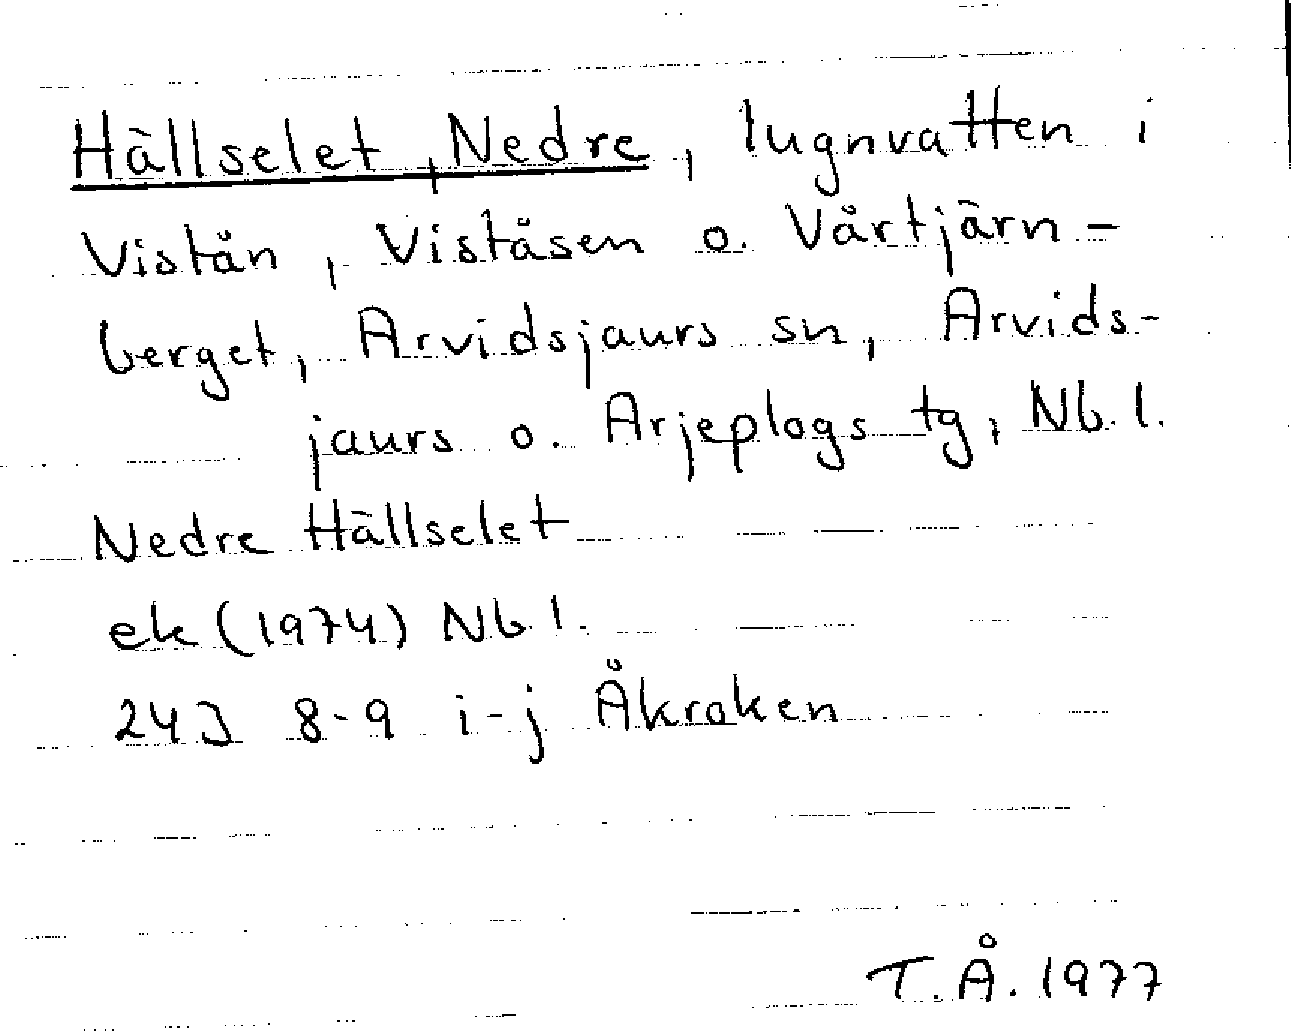 Hällselet, Nedre, lugnvatten i
Vistån, Viståsen o. Vårtjärn-
berget, Arvidsjaurs sn, Arvids-
jaurs o. Arjeplogs tg, Nb. l.
Nedre Hällselet
ek (1974) Nb l.
24J 8-9 i-j Åkroken
T.Å. 1977